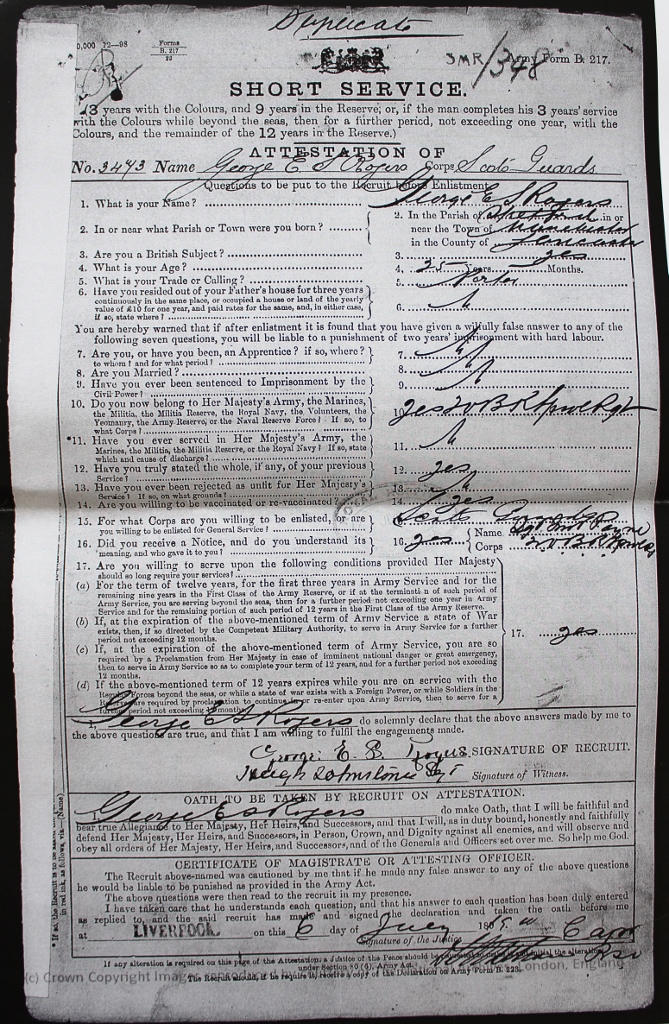 Duplicate
0,000 12—98 Forms B. 217 22
SMR/348 Army Form B. 217.
SHORT SERVICE.
(3 years with the Colours, and 9 years in the Reserve; or, if the man completes his 3 years' service
with the Colours while beyond the seas, then for a further period, not exceeding one year, with the
Colours, and the remainder of the 12 years in the Reserve.)
ATTESTATION OF
No. 3473 Name George E S Rogers Corps Scots Guards
Questions to be put to the Recruit before Enlistment.
1. What is your Name? George E S Rogers
2. In or near what Parish or Town were you born? 2. In the Parish of in or
near the Town of Manchester
in the County of Lancaster
3. Are you a British Subject? 3. yes
4. What is your Age? 4. 25 Years Months.
5. What is your Trade or Calling? 5. Porter
6. Have you resided out of your Father's house for three years
continuously in the same place, or occupied a house or land of the yearly
value of £10 for one year, and paid rates for the same, and, in either case,
if so, state where? 6. N
You are hereby warned that if after enlistment it is found that you have given a wilfully false answer to any of the
following seven questions, you will be liable to a punishment of two years' imprisonment with hard labour.
7. Are you, or have you been, an Apprentice? if so, where?
to whom? and for what period? 7. N
8. Are you Married? 8. N
9. Have you ever been sentenced to Imprisonment by the
Civil Power? 9. N
10. Do you now belong to Her Majesty's Army, the Marines,
the Militia, the Militia Reserve, the Royal Navy, the Volunteers, the
Yeomanry, the Army Reserve, or the Naval Reserve Force? If so, to
what Corps? 10 yes
*11. Have you ever served in Her Majesty's Army, the
Marines, the Militia, the Militia Reserve, or the Royal Navy? If so, state
which and cause of discharge? 11. N
12. Have you truly stated the whole, if any, of your previous
Service? 12. yes
13. Have you ever been rejected as unfit for Her Majesty's
Service? If so, on what grounds? 13. N
14. Are you willing to be vaccinated or re-vaccinated? 14. yes
15. For what Corps are you willing to be enlisted, or are
you willing to be enlisted for General Service? Scots Guards
16. Did you receive a Notice, and do you understand its
meaning, and who gave it to you? 16. yes Name
Corps
17. Are you willing to serve upon the following conditions provided Her Majesty
should so long require your services?
(a) For the term of twelve years, for the first three years in Army Service and for the
remaining nine years in the First Class of the Army Reserve, or if at the termination of such period of
Army Service, you are serving beyond the seas, then for a further period not exceeding one year in Army
Service and for the remaining portion of such period of 12 years in the First Class of the Army Reserve.
(b) If, at the expiration of the above-mentioned term of Army Service a state of War
exists, then, if so directed by the Competent Military Authority, to serve in Army Service for a further
period not exceeding 12 months.
(c) If, at the expiration of the above-mentioned term of Army Service, you are so
required by a Proclamation from Her Majesty in case of imminent national danger or great emergency,
then to serve in Army Service so as to complete your term of 12 years, and for a further period not exceeding
12 months.
(d) If the above-mentioned term of 12 years expires while you are on service with the
Regular Forces beyond the seas, or while a state of war exists with a Foreign Power, or while Soldiers in the
Reserve are required by proclamation to continue in or re-enter upon Army Service, then to serve for a
further period not exceeding 12 months.
17. yes
I, George E S Rogers do solemnly declare that the above answers made by me to
the above questions are true, and that I am willing to fulfil the engagements made.
George E. S. Rogers SIGNATURE OF RECRUIT.
Hugh Johnstone Sgt Signature of Witness.
OATH TO BE TAKEN BY RECRUIT ON ATTESTATION.
I, George E S Rogers do make Oath, that I will be faithful and
bear true Allegiance to Her Majesty, Her Heirs, and Successors, and that I will, as in duty bound, honestly and faithfully
defend Her Majesty, Her Heirs, and Successors, in Person, Crown, and Dignity against all enemies, and will observe and
obey all orders of Her Majesty, Her Heirs, and Successors, and of the Generals and Officers set over me. So help me God.
CERTIFICATE OF MAGISTRATE OR ATTESTING OFFICER.
The Recruit above-named was cautioned by me that if he made any false answer to any of the above questions
he would be liable to be punished as provided in the Army Act.
The above questions were then read to the recruit in my presence.
I have taken care that he understands each question, and that his answer to each question has been duly entered
as replied to, and the said recruit has made and signed the declaration and taken the oath before me
at LIVERPOOL on this 6 day of July 1899
Signature of the Justice
If any alteration is required on this page of the Attestation, a Justice of the Peace should be requested to make it and initial the alteration
under Section 80 (6), Army Act.
The Recruit should, if he require it, receive a copy of the Declaration on Army Form B. 223.
* If so, the Recruit is to be asked
in red ink, as follows, viz.—(Name)
(c) Crown Copyright Images reproduced London, England